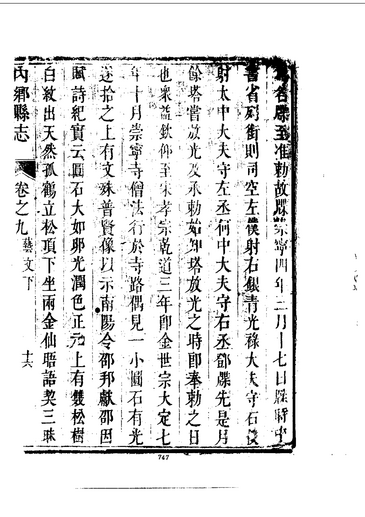 名牒至准勅故牒崇寧四年三月十七日牒時中
書省列銜則司空左僕射右銀青光祿大夫守右僕
射太中大夫守左丞何中大夫守右丞鄧牒先是月
餘塔嘗放光及承勅始知塔放光之時即奉勅之日
也衆益欽仰至宋孝宗乾道三年即金世宗大定七
年十月崇寧寺僧法行於寺路偶見一小圓石有光
遂拾之上有文殊普賢像以示南陽令邵邦獻邵因
賦詩紀實云圓石大如卵光潤色正元上有幾松樹
白紋出天然孤鶴立松頂下坐兩金仙晤語契三昧
內鄉縣志 卷之九 藝文下 十六
747